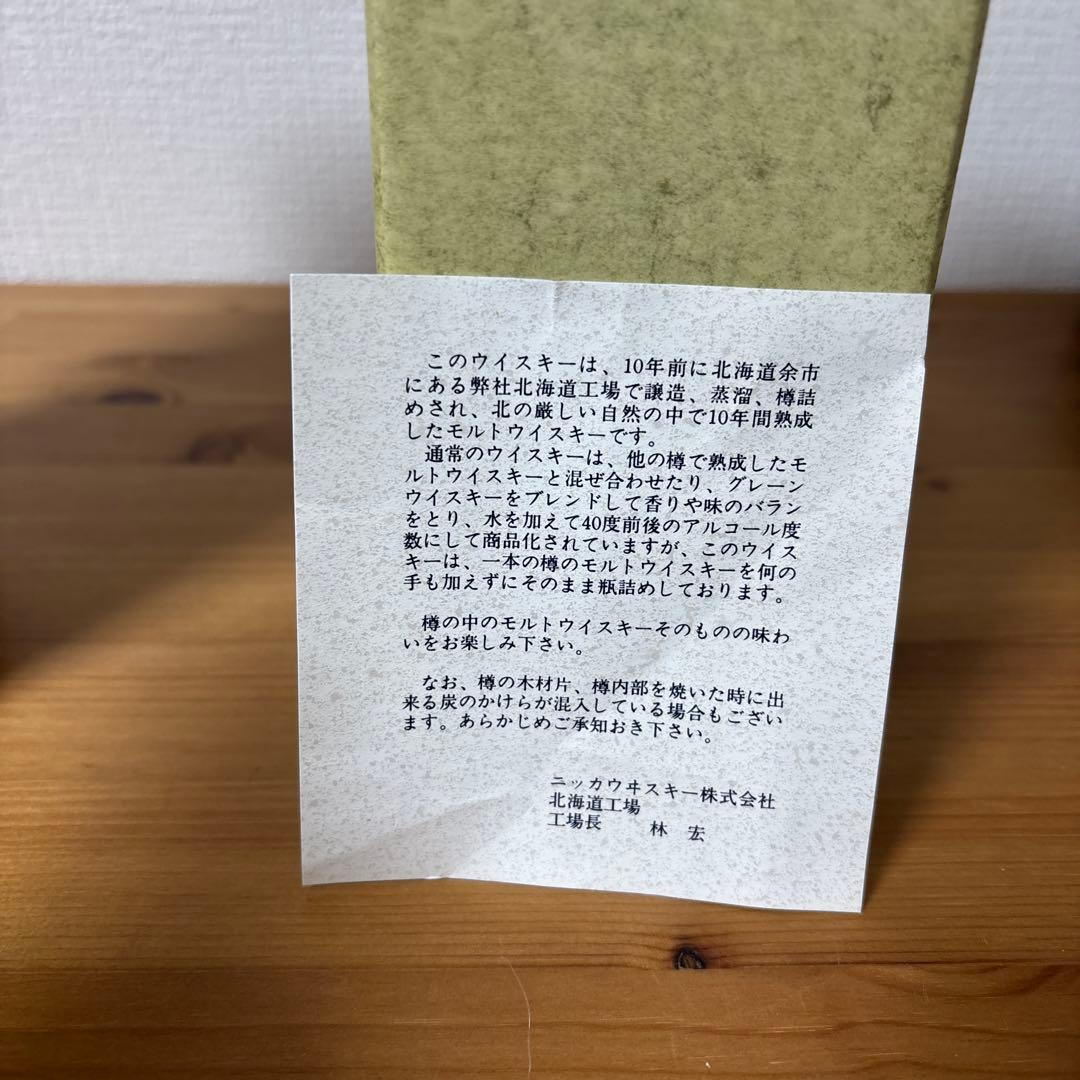 このウイスキーは、10年前に北海道余市
にある弊社北海道工場で醸造、蒸溜、樽詰
めされ、北の厳しい自然の中で10年間熟成
したモルトウイスキーです。
通常のウイスキーは、他の樽で熟成したモ
ルトウイスキーと混ぜ合わせたり、グレーン
ウイスキーをブレンドして香りや味のバラン
をとり、水を加えて40度前後のアルコール度
数にして商品化されていますが、このウイス
キーは、一本の樽のモルトウイスキーを何の
手も加えずにそのまま瓶詰めしております。
樽の中のモルトウイスキーそのものの味わ
いをお楽しみ下さい。
なお、樽の木材片、樽内部を焼いた時に出
来る炭のかけらが混入している場合もござい
ます。あらかじめご承知おき下さい。
ニッカウヰスキー株式会社
北海道工場
工場長 林 宏